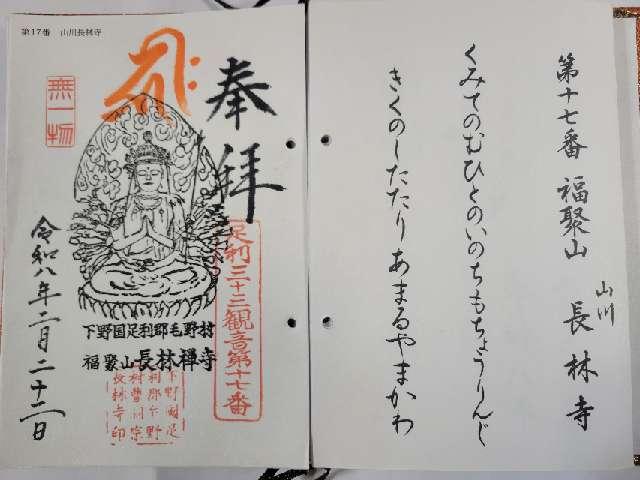 第十七番 福聚山 山川 長林寺
くみてのむひとのいのちもちょうりんじ
きくのしたたりあまるやまかわ
第17番 山川長林寺
奉拝
無一物
足利三十三観音第十七番
下野国足利郡毛野村
福聚山長林禅寺
令和八年二月二十二日